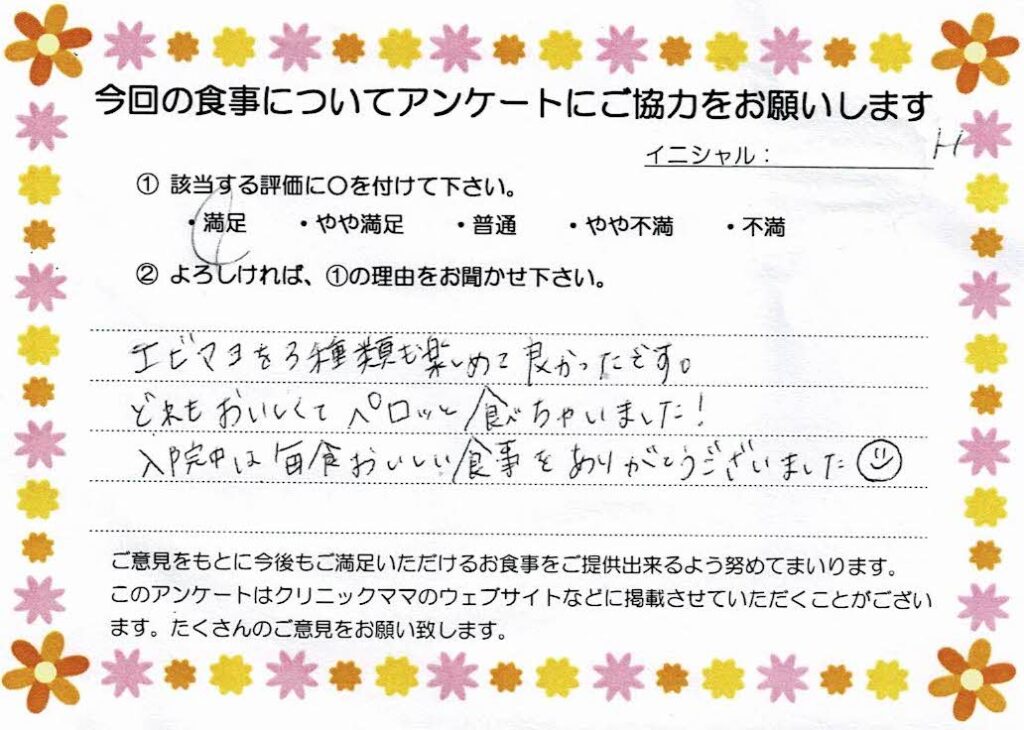 今回の食事についてアンケートにご協力をお願いします
イニシャル： H
① 該当する評価に〇を付けて下さい。
・満足 ・やや満足 ・普通 ・やや不満 ・不満
② よろしければ、①の理由をお聞かせ下さい。
エビマヨを3種類も楽しめて良かったです。
どれもおいしくてペロッと食べちゃいました!
入院中は毎食おいしい食事をありがとうございました
ご意見をもとに今後もご満足いただけるお食事をご提供出来るよう努めてまいります。
このアンケートはクリニックママのウェブサイトなどに掲載させていただくことがござい
ます。たくさんのご意見をお願い致します。